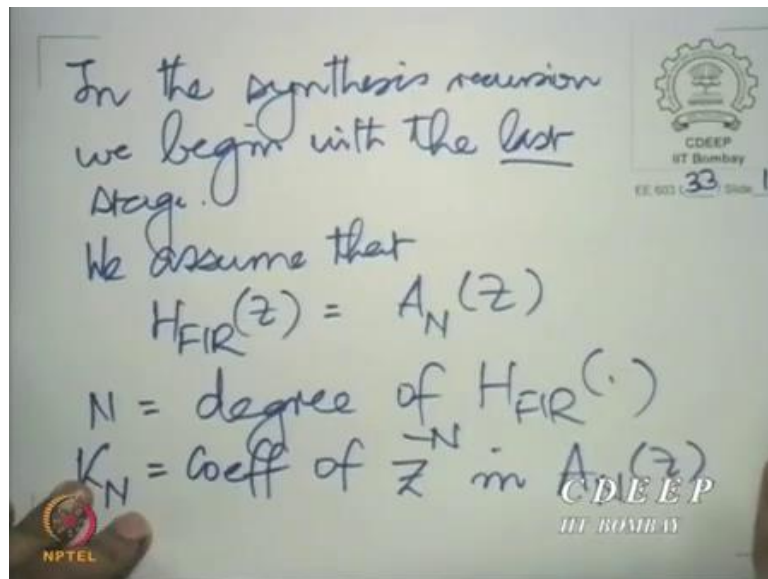 In the synthesis recursion
we begin with the last
stage.
We assume that
H_FIR(Z) = A_N(Z)
N = degree of H_FIR(.)
K_N = Coeff of Z^-N in A_N(Z)
CDEEP
IIT Bombay
EE 603 L 33 / Slide 1
CDEEP
IIT BOMBAY
NPTEL